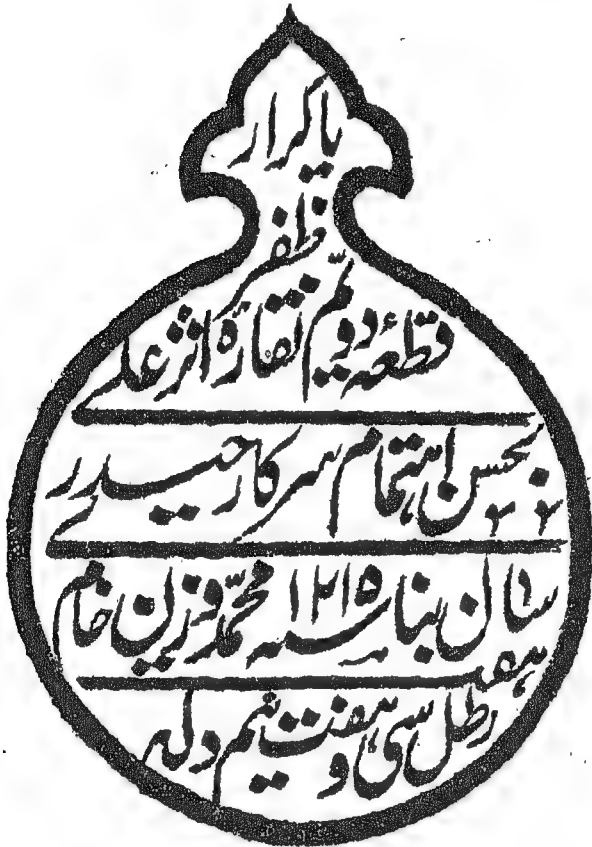 یا کرار
ظفر
قطعه دویم نقاره اثر علی
بحسن اهتمام سرکار حیدری
سال بنا سنه ۱۲۱۵ محمدی وزن خام
هفت
رطل سی و هفت نیم